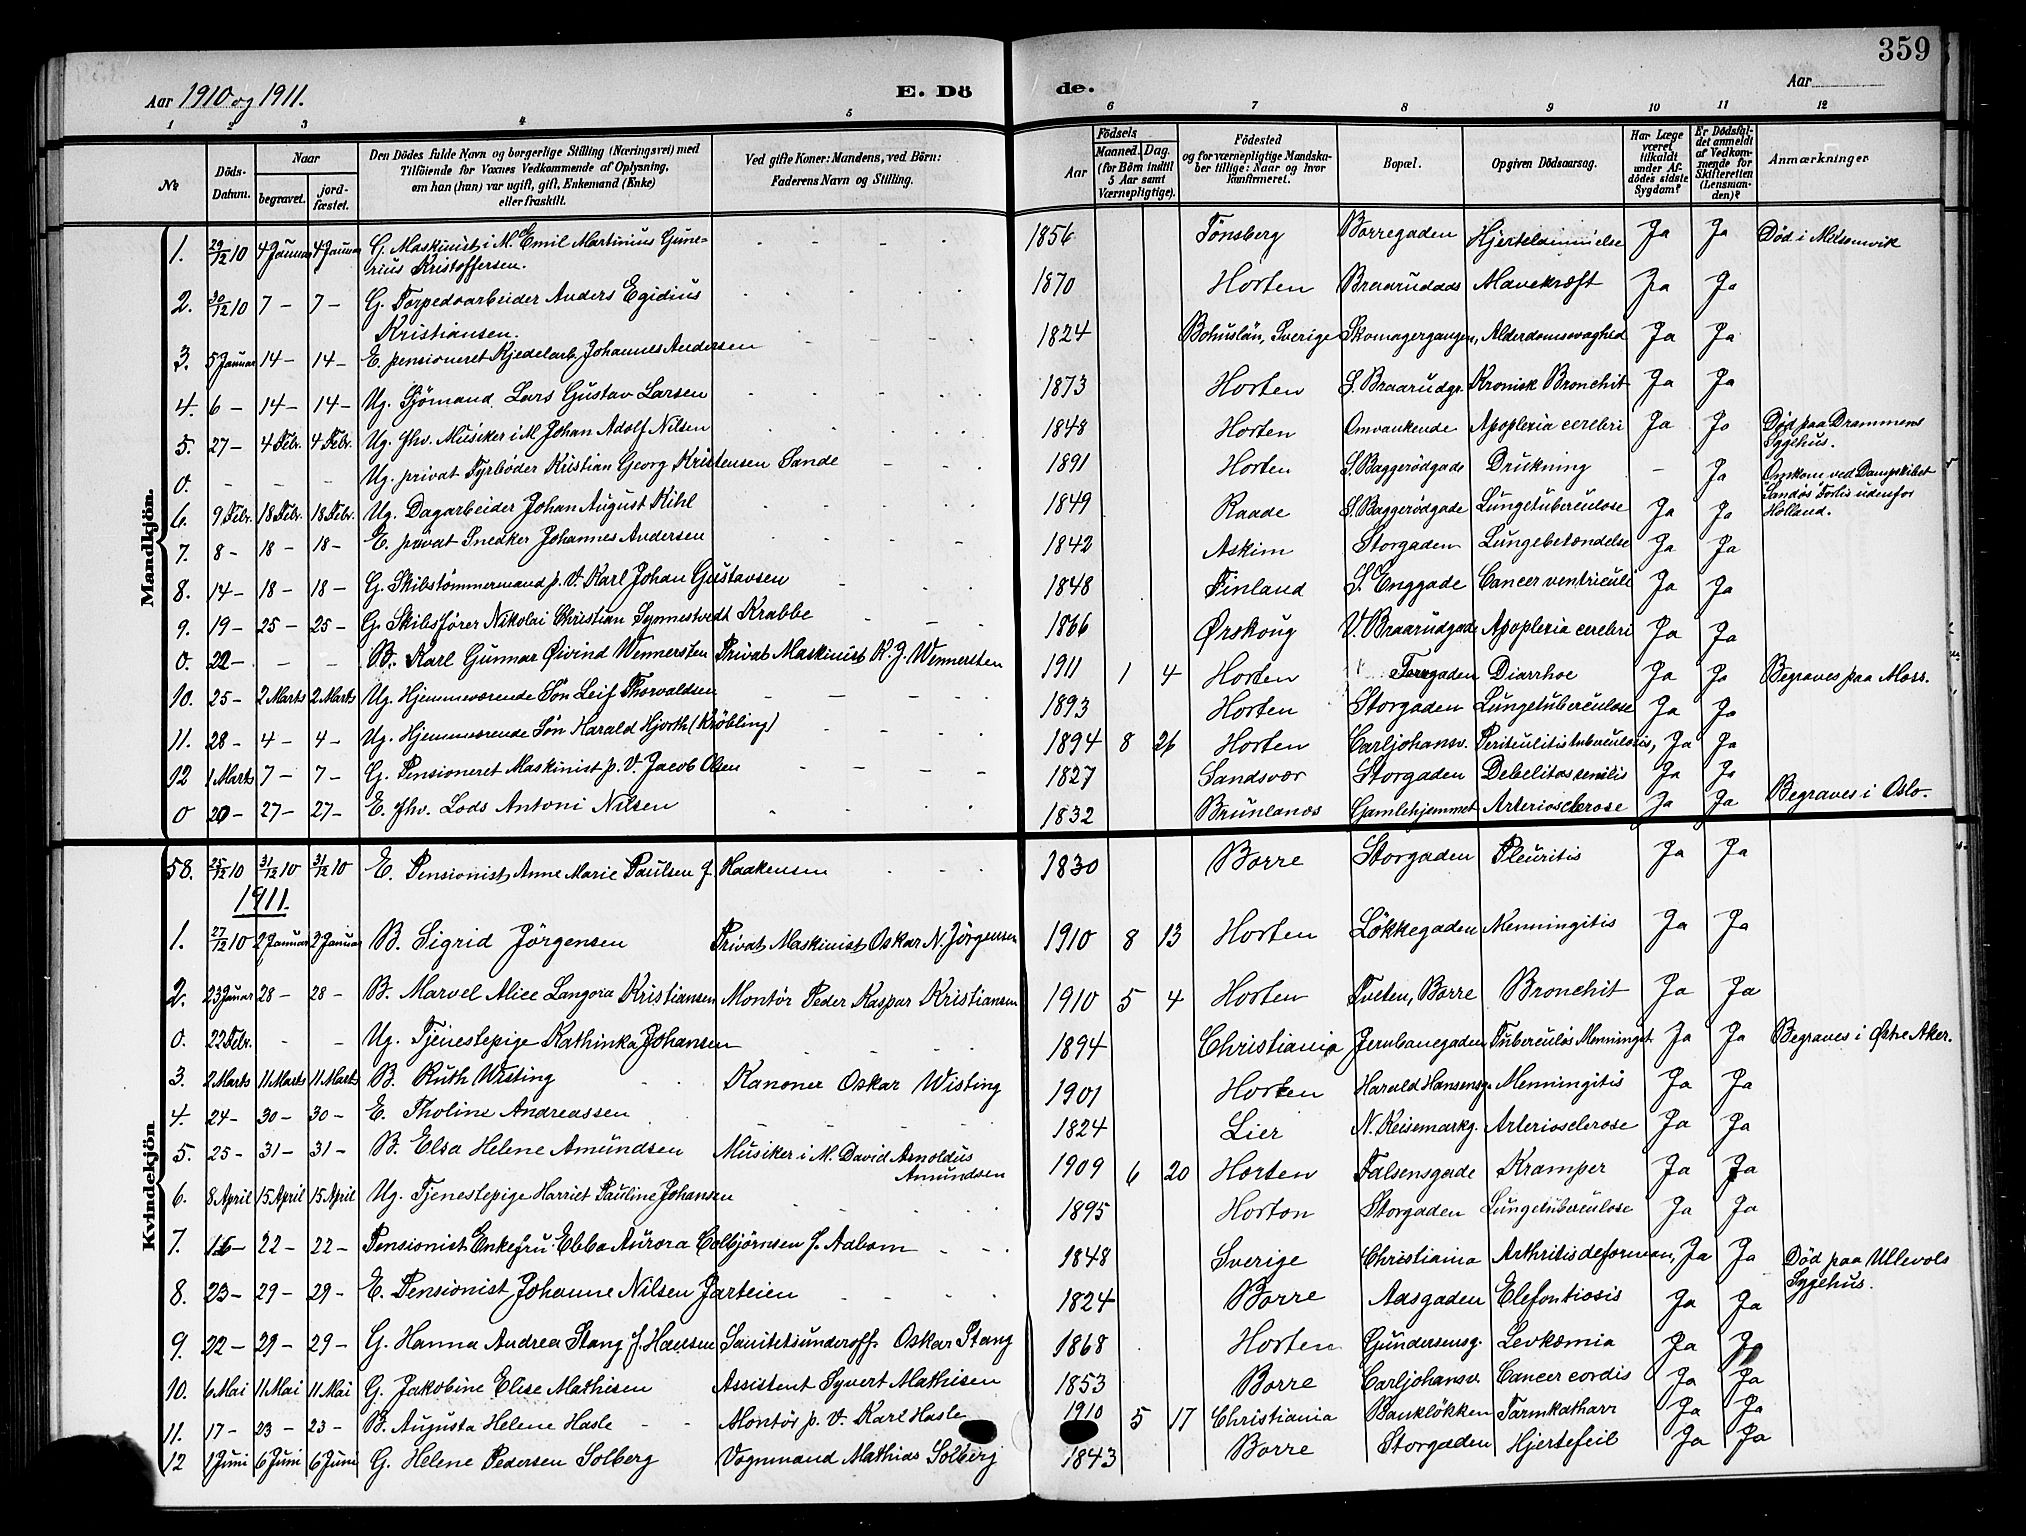 359
Aar 1910 og 1911. E. Dö de. Aar
1 2 3 4 5 6 7 8 9 10 11 12
No
Döds-Datum.
Naar
begravet.
jordfæstet.
Den Dödes fulde Navn og borgerlige Stilling (Næringsvei) med
Tilföiende for Voxnes Vedkommende af Oplysning,
om han (hun) var ugift, gift, Enkemand (Enke)
eller fraskilt.
Ved gifte Koner: Mandens, ved Börn:
Faderens Navn og Stilling.
Födsels
Aar
Maaned. Dag.
(for Börn indtil
5 Aar samt
Værnepligtige).
Födested
og for værnepligtige Mandskaber tillige: Naar og hvor
konfirmeret.
Bopæl.
Opgiven Dödsaarsag.
Har Læge
været
tilkaldt
under Afdödes sidste
Sygdom?
Er Dödsfaldet anmeldt
af Vedkommende for
Skifteretten
(Lensmanden)?
Anmærkninger
Mandkjön.
1. 29/12 10 4 Januar 4 Januar G. Maskinist i M. Emil Martinius Gunerius Kristoffersen. 1856 Tönsberg Borregaden Hjertelammelse Ja Ja Död i Melsomvik
2. 30/12 10 7 - 7 - G. Torpedoarbeider Anders Egidius Kristiansen. 1870 Horten Braarudgds Mavekræft Ja Ja
3. 5 Januar 14 - 14 - E. pensioneret Kjedelarb. Johannes Andersen 1824 Bohuslän, Sverige Skomagergangen, Alderdomssvaghed Ja Ja
4. 6 - 14 - 14 - Ug. Sjömand Lars Gustav Larsen 1873 Horten S. Braarudgt. Kronisk Bronchit Ja Ja
5. 27 - 4 Febr. 4 Febr. Ug. fhv. Musiker i M. Johan Adolf Nilsen 1848 Horten Omvankende Apoplexia cerebri Ja Ja Död paa Drammens Sygehus.
0. - - - Ug. privat Fyrböder Kristian Georg Kristensen Sande 1891 Horten S. Baggerødgade Drukning - Ja Omkom ved Dampskibet Sandøs Forlis udenfor Holland.
6. 9 Febr. 18 Febr. 18 Febr. Ug. Dagarbeider Johan August Kihl 1849 Raade S. Baggerødgade Lungetuberculose Ja Ja
7. 8 - 18 - 18 - E. privat Snedker Johannes Andersen 1842 Askim Storgaden Lungebetændelse Ja Ja
8. 14 - 18 - 18 - G. Skibstömmermand p. V. Karl Johan Gustavsen 1848 Finland S. Enggade Cancer ventriculi Ja Ja
9. 19 - 25 - 25 - G. Skibsförer Nikolai Christian Synnestvedt Krabbe 1866 Ørskoug V. Braarudgade Apoplexia cerebri Ja Ja
0. 22 - - - B. Karl Gunnar Øivind Wennersten Privat Maskinist K. J. Wennersten 1911 1 4 Horten Torvgaden Diarrhoe Ja Ja Begraves paa Moss.
10. 25 - 2 Marts 2 Marts Ug. Hjemmeværende Sön Leif Thorvaldsen 1893 Horten Storgaden Lungetuberculose Ja Ja
11. 28 - 4 - 4 - Ug. Hjemmeværende Sön Harald Hjorth (Kröbling) 1894 8 26 Horten Carljohansv. Ja Ja
12 1 Marts 7 - 7 - G. Pensioneret Maskinist p. V. Jacob Olsen 1827 Sandsvær Storgaden Debelitas senilis Ja Ja
0 20 - 27 - 27 - E. fhv. Lods Antoni Nilsen 1832 Brunlanæs Gamlehjemmet Arteriosclerose Ja Ja Begraves i Oslo.
Kvindekjön
58. 25/12 10 31/12 10 31/12 10 E. Pensionist Anne Marie Paulsen f. Haakensen 1830 Borre Storgaden Pleuritis Ja Ja
1911.
1. 27/12 10 2 Januar 2 Januar B. Sigrid Jörgensen Privat Maskinist Oskar N. Jörgensen 1910 8 13 Horten Lökkegaden Menningitis Ja Ja
2. 23 Januar 28 - 28 - B. Marvel Alice Langora Kristiansen Montör Peder Kaspar Kristiansen 1910 5 4 Horten Tveten, Borre Bronchit Ja Ja
0. 22 Febr. - - Ug. Tjenestepige Kathinka Johansen 1894 Christiania Jernbanegaden Tuberculös Menninget Ja Ja Begraves i Østre Aker.
3. 2 Marts 11 Marts 11 Marts B. Ruth Wisting Kanoner Oskar Wisting 1901 Horten Harald Hansensg. Menningitis Ja Ja
4. 24 - 30 - 30 - E. Tholine Andreassen 1824 Lier N. Keisemarkg. Arteriosclerose Ja Ja
5. 25 - 31 - 31 - B. Elsa Helene Amundsen Musiker i M. David Arnoldus Amundsen 1909 6 20 Horten Falsensgade Kramper Ja Ja
6. 8 April 15 April 15 April Ug. Tjenestepige Harriet Pauline Johansen 1895 Horten Storgaden Lungetuberculose Ja Ja
7. 16 - 22 - 22 - Pensionist Enkefru Ebba Aurora Colbjörnsen f. Aabom 1848 Sverige Christiania Arthritis deforman, Ja Ja Död paa Ullevols Sygehus.
8. 23 - 29 - 29 - E. Pensionist Johanne Nilsen Jarteien 1824 Borre Aasgaden Elefontiosis Ja Ja
9. 22 - 29 - 29 - G. Hanna Andrea Stang f. Hansen Sanitetsunderoff. Oskar Stang 1868 Horten Gundersensg. Levkæmia Ja Ja
10. 6 Mai 11 Mai 11 Mai G. Jakobine Elise Mathisen Assistent Syvert Mathisen 1853 Borre Carljohansv. Cancer cordis Ja Ja
11. 17 - 23 - 23 - B. Augusta Helene Hasle Montör p. V. Karl Hasle 1910 5 17 Christiania Bankløkken Tarmkatharr Ja Ja
12 1 Juni 6 Juni 6 Juni G. Helene Pedersen Solberg Vognmand Mathias Solberg 1843 Borre Storgaden Hjertefeil Ja Ja